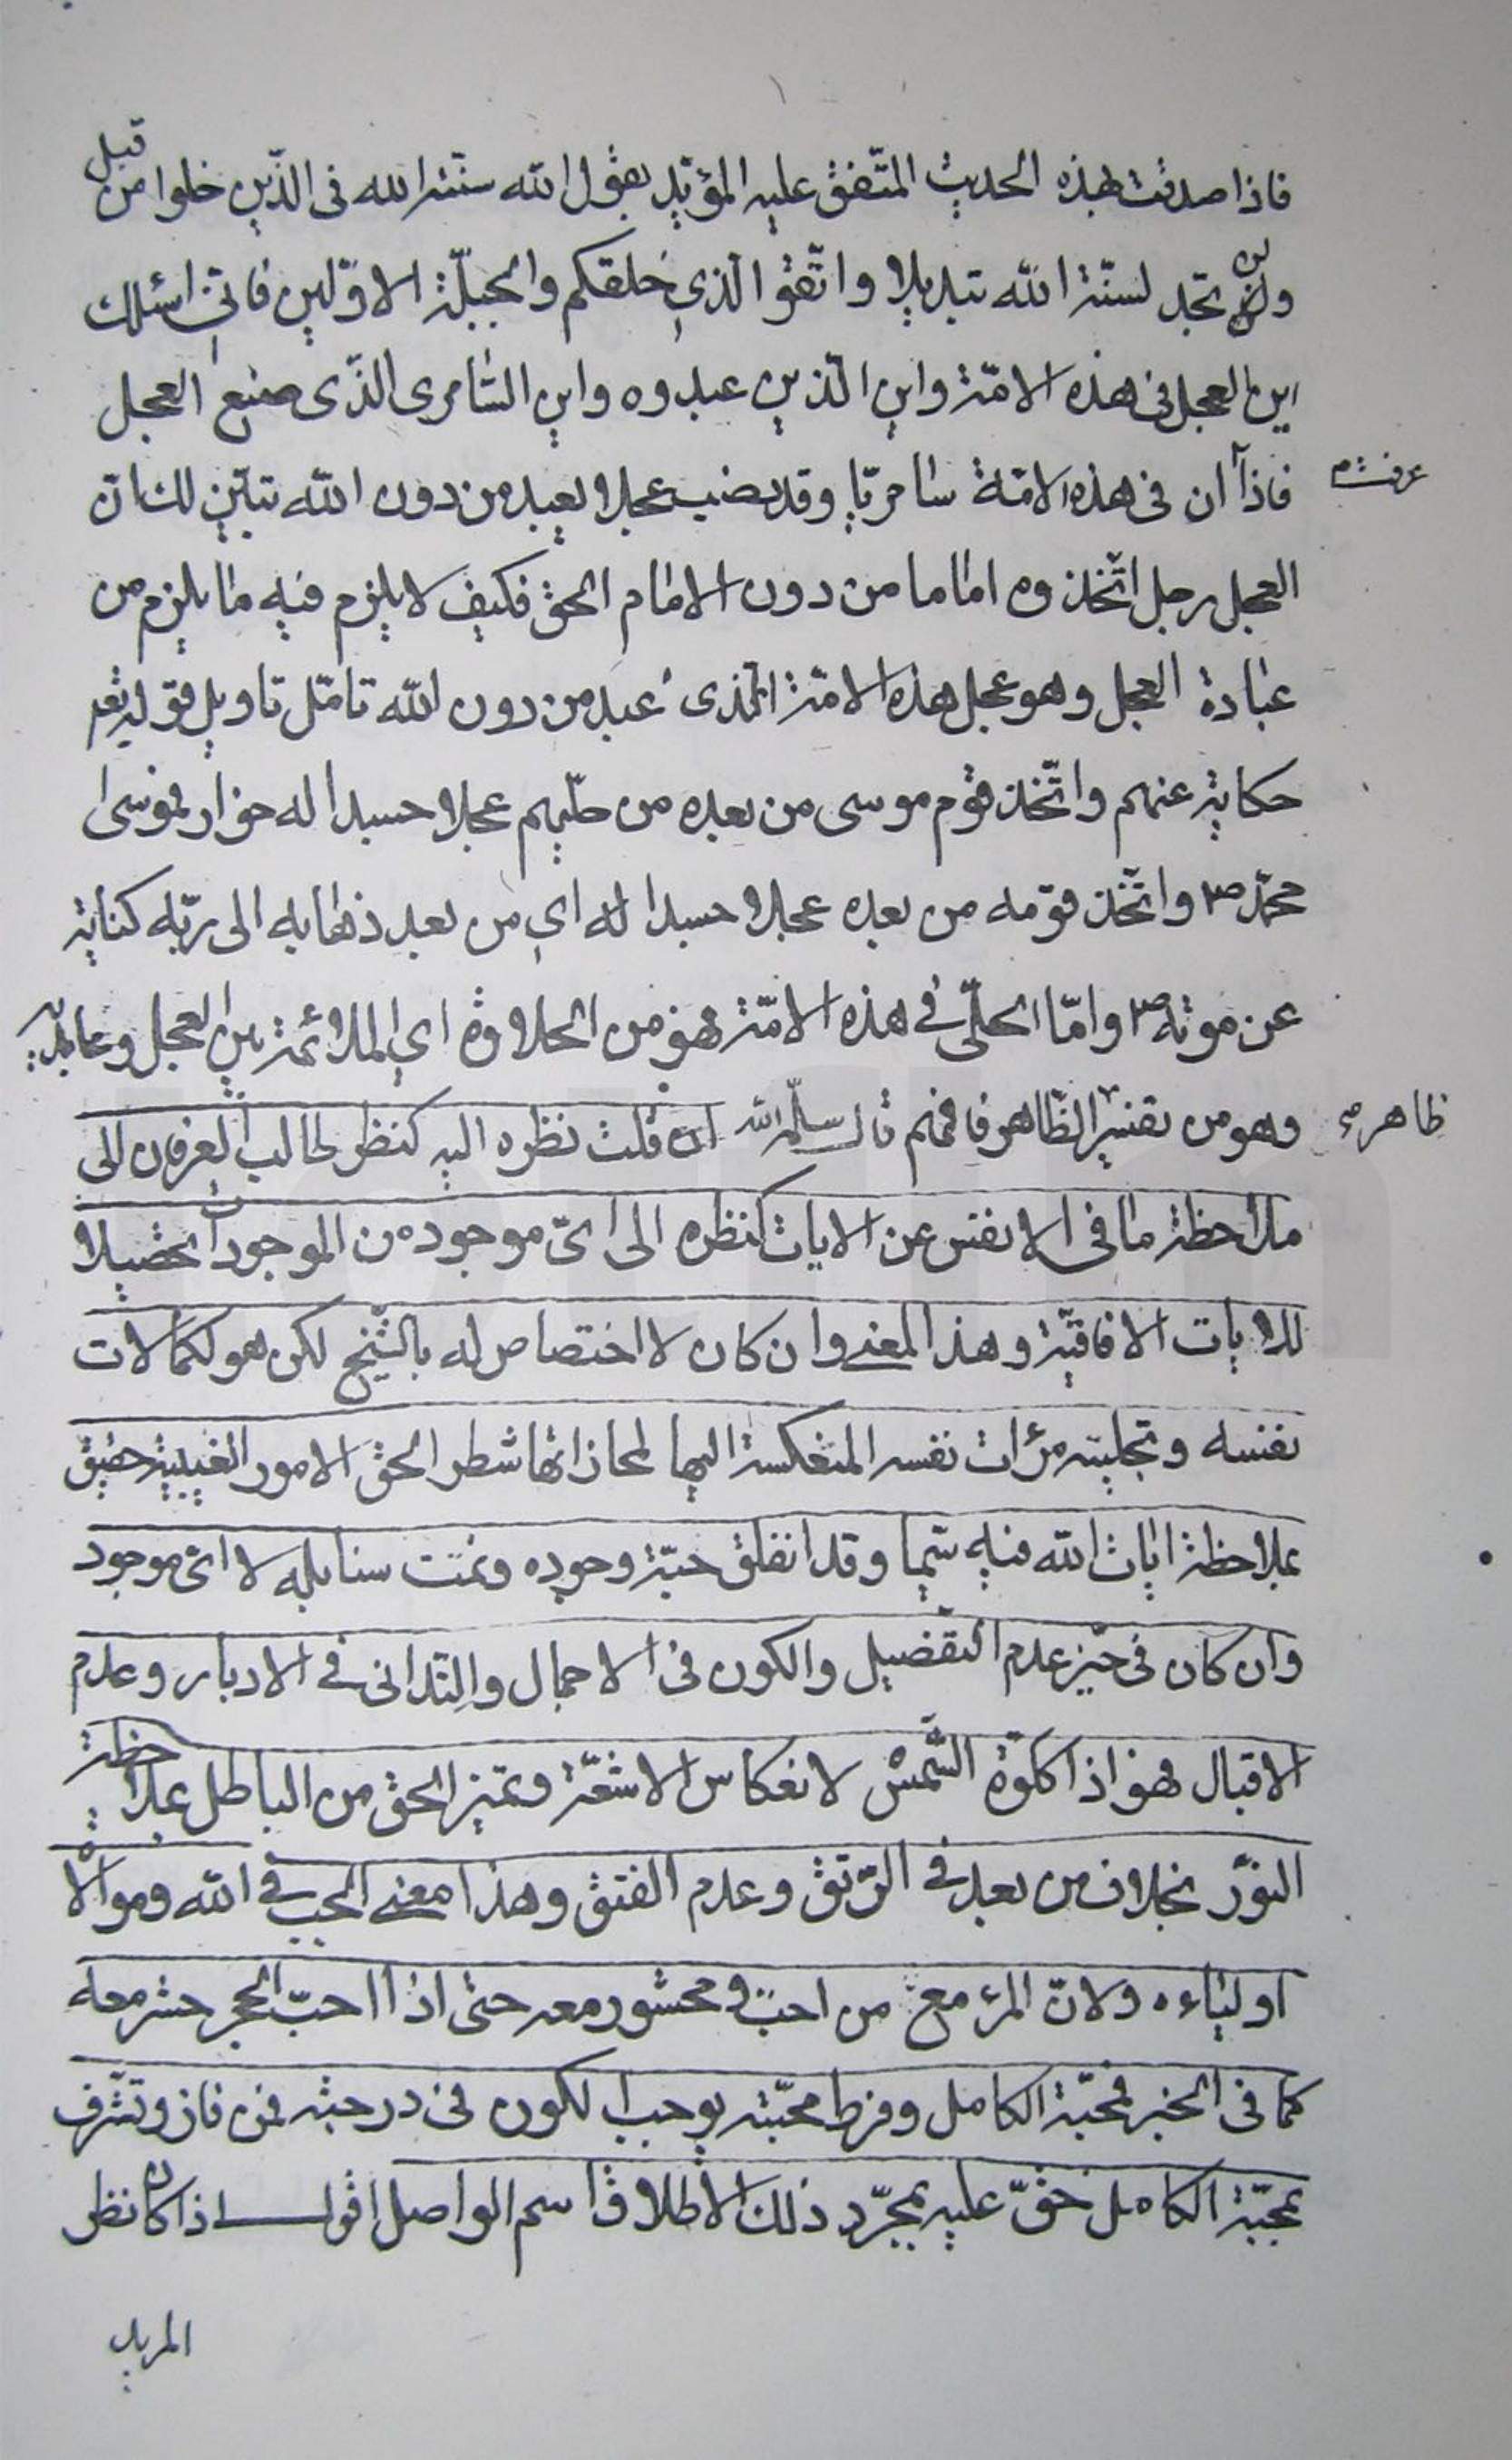 فاذا صدقت بهذه الحديث المتّفق عليه المؤيّد بقول الله سنّة الله في الذّين خلوا من قبل
ولن تجد لسنّة الله تبديلا واتّقوا الذي خلقكم والجبلّة الاوّلين فانّي اسئلك
اين العجل في هذه الامّة واين الّذين عبدوه واين السّامري الذّي صنع العجل
فاذا عرفت ان في هذه الامّة سامريّا وقد نصب عجلا يعبد من دون الله تبيّن لك انّ
العجل رجل اتّخذوه اماما من دون الامام الحق فكيف لا يلزم فيه ما يلزم من
عبادة العجل وهو عجل هذه الامّة الّذي عبد من دون الله تامّل تاويل قوله تعم
حكاية عنهم واتّخذ قوم موسى من بعده من حليّهم عجلا جسدا له خوار فموسى
محمّد ص واتّخذ قومه من بعده عجلا جسدا له اي من بعد ذهابه الى ربّه كناية
عن موته ص وامّا الحلّي في هذه الامّة فهو من الحلاوة اي الملائمة بين العجل وعابديه
وهو من تفسير الظّاهر فافهم قال سلّمه الله ان قلت نظره اليه كنظر طالب العرفان الى
ظاهره
ملاحظة ما في الانفس عن الايات كنظره الى ايّ موجود من الموجودات تحصيلا
للايات الافاقيّة وهذا المعنى وان كان لا اختصاص له بالشّيخ لكن هو لكمالات
نفسه وتجليته مرات نفسه المنعكسة اليها لمحاذاتها شطر الحق الامور الغيبية حقيق
بملاحظة ايات الله فيه سيّما وقد انفلق حبّة وجوده ونمت سنابله لا ايّ موجود
وان كان في حيّز عدم التفصيل والكون في الاجمال والتداني في الادبار وعدم
الاقبال فهو اذا ككوّة الشّمس لانعكاس الاشعّة وتميز الحق من الباطل بملاحظة
النوّر بخلاف من بعد في الرّتق وعدم الفتق وهذا معنى الحب في الله وموالاة
اوليائه ولانّ المرء مع من احبّ ومحشور معه حتى اذا احبّ الحجر حشر معه
كما في الخبر فمحبّة الكامل وفرط محبّته يوجب الكون في درجته فمن فاز وتشّرف
بمحبّة الكامل حقّ عليه بمجرّد ذلك الاطلاق اسم الواصل اقول اذا كان نظر
المريد